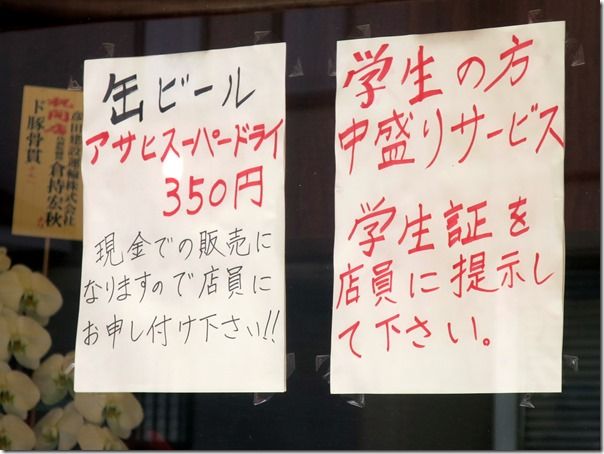 缶ビール
アサヒスーパードライ
350円
現金での販売に
なりますので店員に
お申し付け下さい!!
学生の方
中盛りサービス
学生証を
店員に提示し
て下さい。
祝開店
ド豚骨貫
倉持宏秋